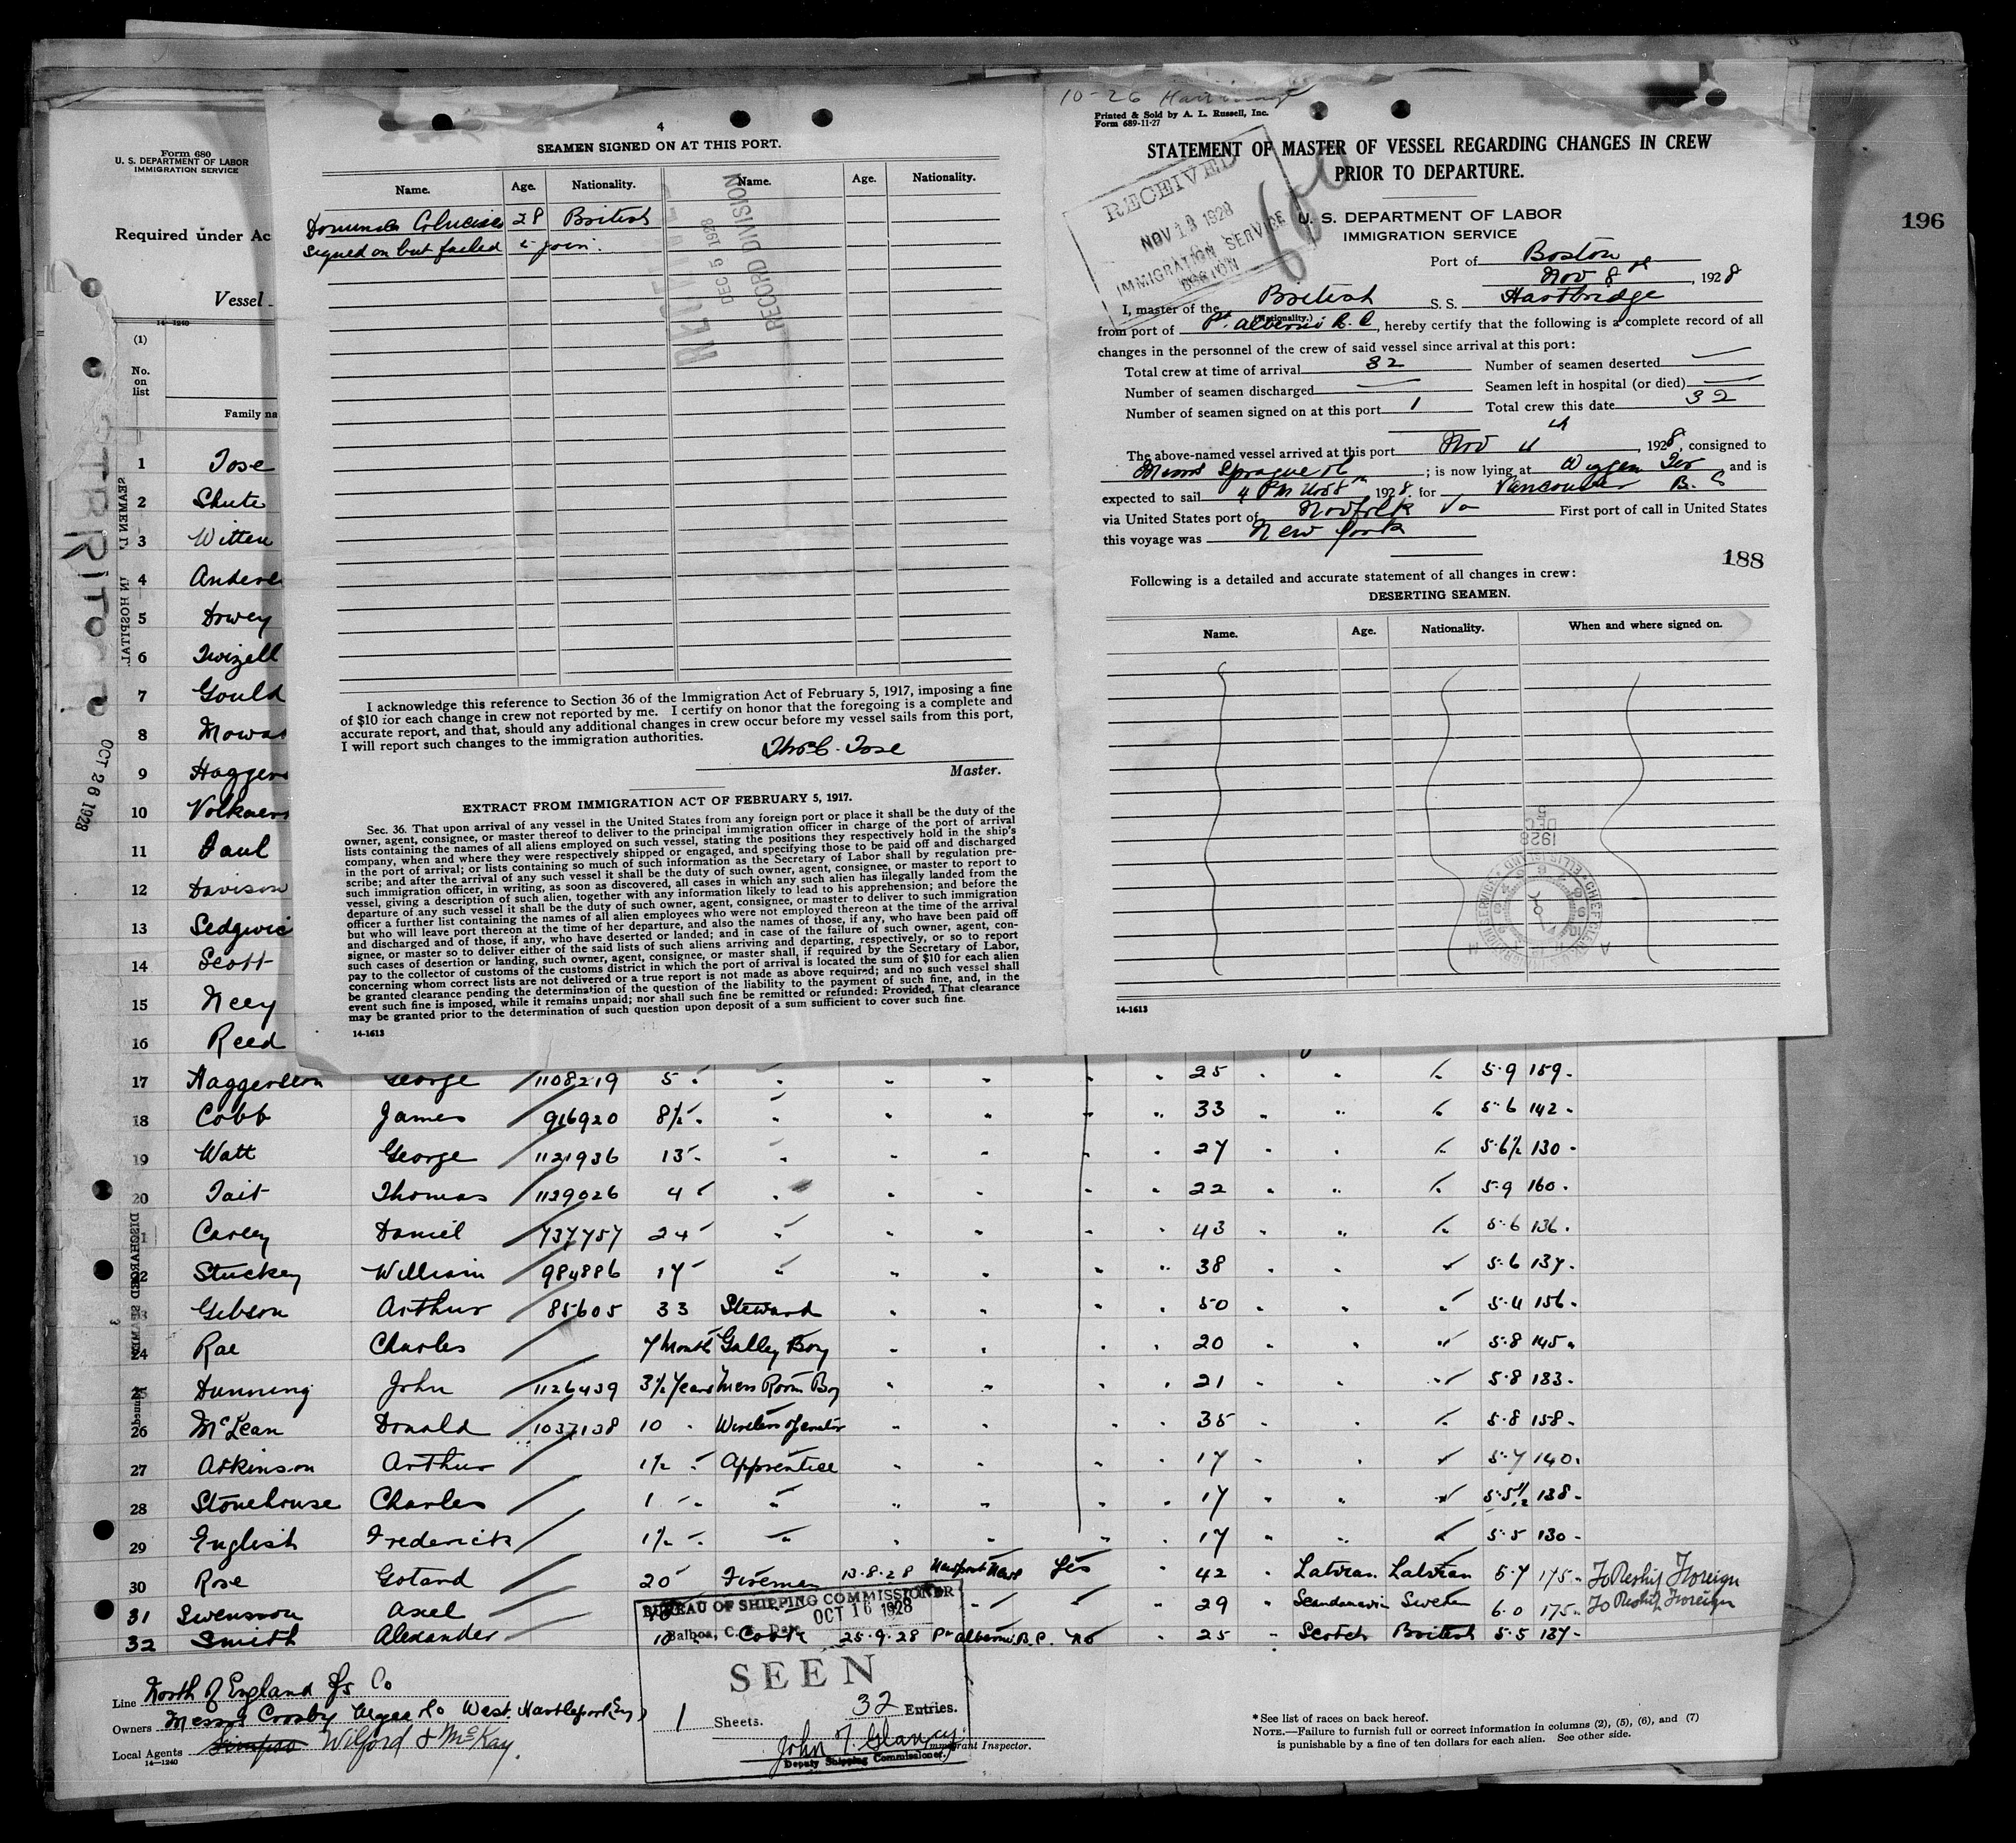 196
Form 680
U. S. DEPARTMENT OF LABOR
IMMIGRATION SERVICE
Required under Ac
Vessel
14-1240
(1)
No.
on
list
Family na
4
SEAMEN SIGNED ON AT THIS PORT.
Name. Age. Nationality. Name. Age. Nationality.
28 British
Signed on but failed to join.
RECEIVED
DEC 5 1928
RECORD DIVISION
I acknowledge this reference to Section 36 of the Immigration Act of February 5, 1917, imposing a fine
of $10 for each change in crew not reported by me. I certify on honor that the foregoing is a complete and
accurate report, and that, should any additional changes in crew occur before my vessel sails from this port,
I will report such changes to the immigration authorities.
Thos C. Tose
Master.
EXTRACT FROM IMMIGRATION ACT OF FEBRUARY 5, 1917.
Sec. 36. That upon arrival of any vessel in the United States from any foreign port or place it shall be the duty of the
owner, agent, consignee, or master thereof to deliver to the principal immigration officer in charge of the port of arrival
lists containing the names of all aliens employed on such vessel, stating the positions they respectively hold in the ship's
company, when and where they were respectively shipped or engaged, and specifying those to be paid off and discharged
in the port of arrival; or lists containing so much of such information as the Secretary of Labor shall by regulation pre-
scribe; and after the arrival of any such vessel it shall be the duty of such owner, agent, consignee, or master to report to
such immigration officer, in writing, as soon as discovered, all cases in which any such alien has illegally landed from the
vessel, giving a description of such alien, together with any information likely to lead to his apprehension; and before the
departure of any such vessel it shall be the duty of such owner, agent, consignee, or master to deliver to such immigration
officer a further list containing the names of all alien employees who were not employed thereon at the time of the arrival
but who will leave port thereon at the time of her departure, and also the names of those, if any, who have been paid off
and discharged and of those, if any, who have deserted or landed; and in case of the failure of such owner, agent, con-
signee, or master so to deliver either of the said lists of such aliens arriving and departing, respectively, or so to report
such cases of desertion or landing, such owner, agent, consignee, or master shall, if required by the Secretary of Labor,
pay to the collector of customs of the customs district in which the port of arrival is located the sum of $10 for each alien
concerning whom correct lists are not delivered or a true report is not made as above required; and no such vessel shall
be granted clearance pending the determination of the question of the liability to the payment of such fine, and, in the
event such fine is imposed, while it remains unpaid; nor shall such fine be remitted or refunded: Provided, That clearance
may be granted prior to the determination of such question upon deposit of a sum sufficient to cover such fine.
14-1613
10-26
Printed & Sold by A. L. Russell, Inc.
Form 689-11-27
STATEMENT OF MASTER OF VESSEL REGARDING CHANGES IN CREW
PRIOR TO DEPARTURE.
RECEIVED
NOV 13 1928
IMMIGRATION SERVICE
BOSTON
U. S. DEPARTMENT OF LABOR
IMMIGRATION SERVICE
Port of Boston
Nov 8th, 1928
I, master of the British S. S. Hartbridge
(Nationality.)
from port of Pt Alberni B.C., hereby certify that the following is a complete record of all
changes in the personnel of the crew of said vessel since arrival at this port:
Total crew at time of arrival 32 Number of seamen deserted
Number of seamen discharged Seamen left in hospital (or died)
Number of seamen signed on at this port 1 Total crew this date 32
The above-named vessel arrived at this port Nov 4th, 1928, consigned to
Messrs Sprague ; is now lying at Wiggin Ter and is
expected to sail 4 PM Nov 8th 1928. for Vancouver B.C
via United States port of Norfolk Va First port of call in United States
this voyage was New York
188
Following is a detailed and accurate statement of all changes in crew:
DESERTING SEAMEN.
Name. Age. Nationality. When and where signed on.
DEC 5 1928
14-1613
SEAMEN L
IN HOSPITAL
OCT 26 1928
1 Tose
2 Shute
3 Witten
4 Anders
5 Drwey
6 Twizell
7 Gould
8 Mowa
9 Hagger
10 Volkner
11 Paul
12 Davison
13 Sedgwic
14 Scott
15 Neey
16 Reed
17 Haggerston George 1108219 5 25 5·9 159
18 Cobb James 916920 8½ 33 5·6 142
19 Watt George 1121936 13 27 5·6½ 130
20 Tait Thomas 1129026 4 22 5·9 160
21 Carley Daniel 737757 24 43 5·6 136
22 Stuckey William 984886 17 38 5·6 137
23 Gibson Arthur 85605 33 Steward 50 5·4 156
24 Rae Charles 7 Month Galley Boy 20 5·8 145
25 Dunning John 1126439 3½ Years Mess Room Boy 21 5·8 133
26 McLean Donald 1037138 10 Wireless Operator 35 5·8 158
27 Atkinson Arthur 1½ Apprentice 17 5·7 140
28 Stonehouse Charles 1 17 5·5½ 138
29 English Frederick 1½ 17 5·5 130
30 Rose Gotard 20 Fireman 13·8·28 Newport News Yes 42 Latvian Latvian 5·7 175 To Reship Foreign
31 Swensson Axel 29 Scandanavian Sweden 6·0 175 To Reship Foreign
32 Smith Alexander 10 Cook 25·9·28 Pt Alberni B.C. No 25 Scotch British 5·5 137
DISCHARGED SEAMEN
3
BUREAU OF SHIPPING COMMISSIONER
Balboa, C. Z. Date OCT 16 1928
SEEN
1 Sheets. 32 Entries.
Deputy Shipping Commissioner.
Immigrant Inspector.
Line North of England Ss Co
Owners Messrs Crosby Magee & Co West Hartlepool Eng
Local Agents Simpson Wilford & McKay.
14-1240
*See list of races on back hereof.
NOTE.—Failure to furnish full or correct information in columns (2), (5), (6), and (7)
is punishable by a fine of ten dollars for each alien. See other side.